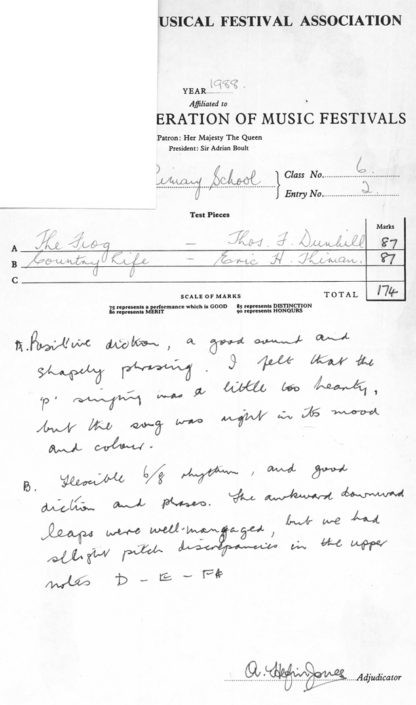 USICAL FESTIVAL ASSOCIATION
YEAR 1988.
Affiliated to
ERATION OF MUSIC FESTIVALS
Patron: Her Majesty The Queen
President: Sir Adrian Boult
rimary School
Class No. 6.
Entry No. 2.
Test Pieces
Marks
A The Frog — Thos. F. Dunhill 87
B Country Life — Eric H. Thiman. 87
C
TOTAL 174
SCALE OF MARKS
75 represents a performance which is GOOD 85 represents DISTINCTION
80 represents MERIT 90 represents HONOURS
A. Positive diction, a good sound and
shapely phrasing. I felt that the
'p' singing was a little too hearty,
but the song was right in its mood
and colour.
B. Flexible 6/8 rhythm, and good
diction and phrases. The awkward downward
leaps were well-managed, but we had
slight pitch discrepancies in the upper
notes D - E - F#
Adjudicator